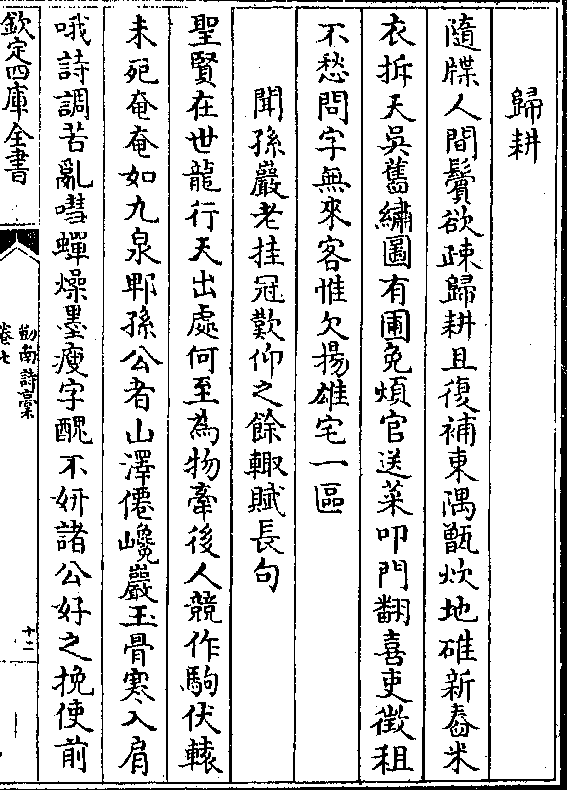 歸耕
隨牒人間鬢欲疎歸耕且復補東隅甑炊地碓新舂米
衣拆天吳舊繡圖有圃免煩官送菜叩門翻喜吏徵租
不愁問字無來客惟欠揚雄宅一區
聞孫巖老挂冠歎仰之餘輙賦長句
聖賢在世龍行天出處何至為物牽後人競作駒伏轅
未死奄奄如九泉鄆孫公者山澤僊巉巖玉骨寒入肩
哦詩調苦亂嘒蟬燥墨瘦字醜不妍諸公好之挽使前
欽定四庫全書
劒南詩藁
卷七
十二